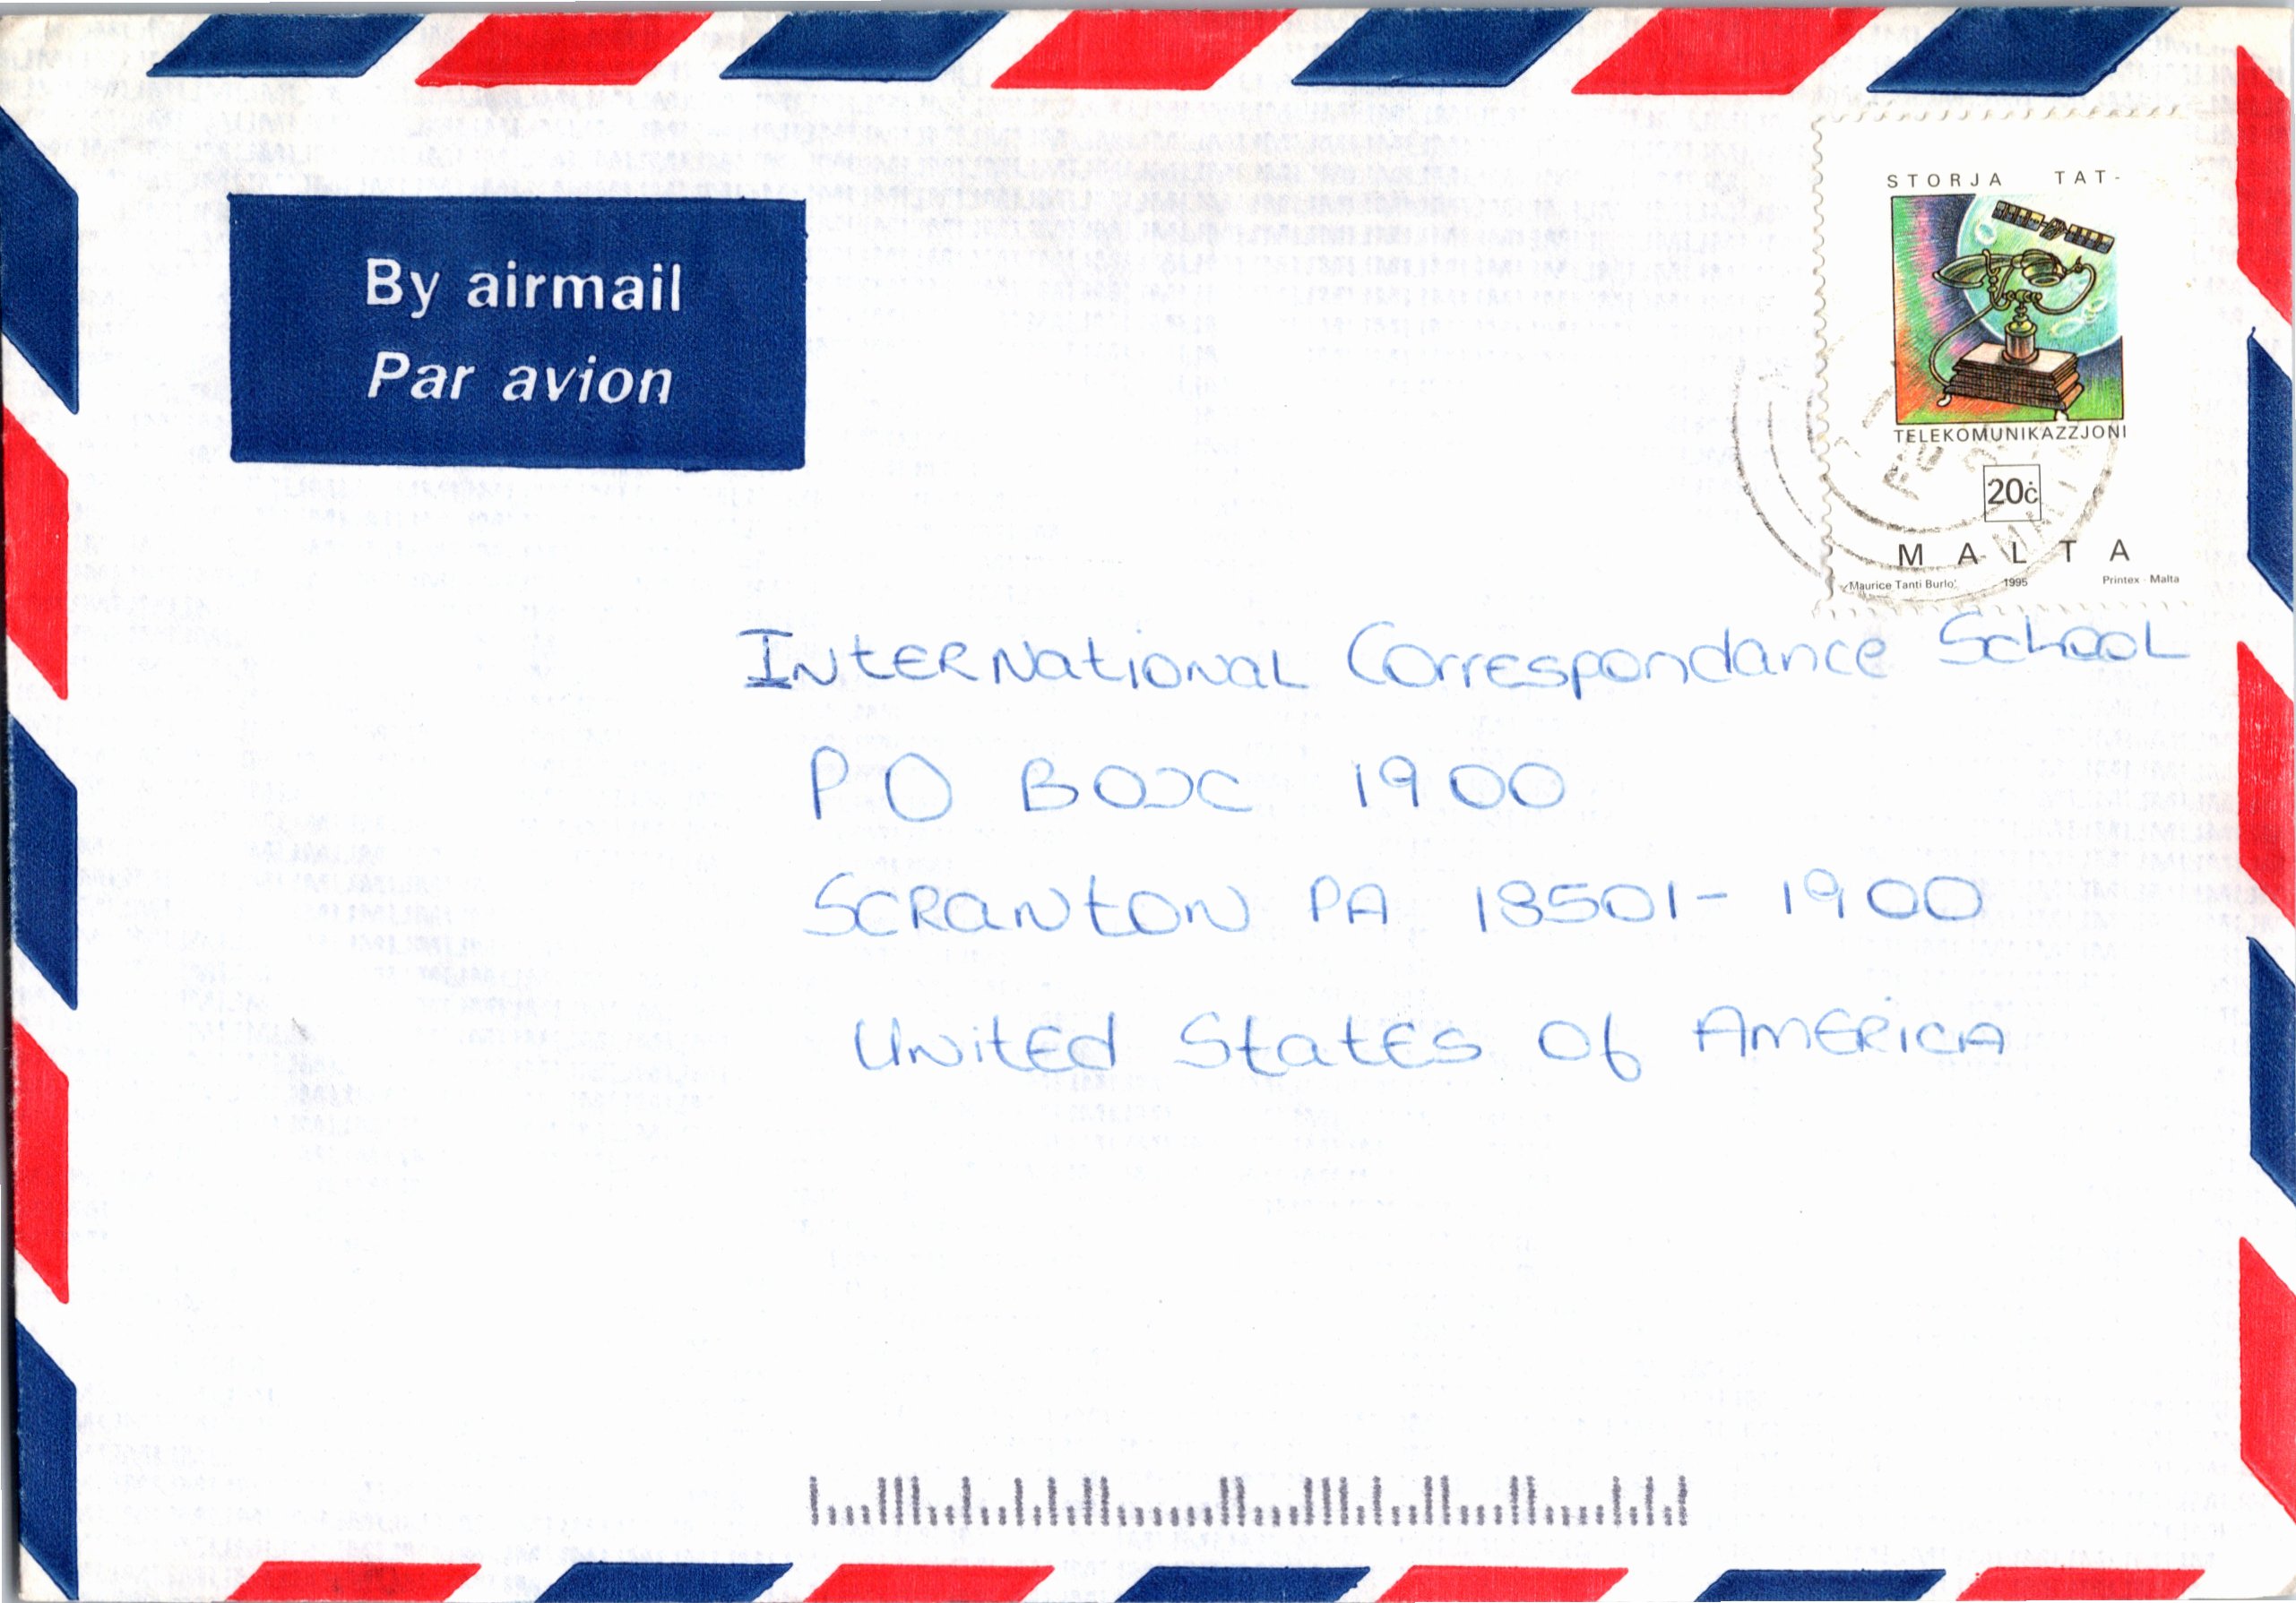 By airmail
Par avion
STORJA TAT-
TELEKOMUNIKAZZJONI
20ċ
MALTA
Maurice Tanti Burlo' 1995 Printex - Malta
INTERNational Correspondance School
PO BOX 1900
SCRANTON PA 18501-1900
United States Of AMERICA